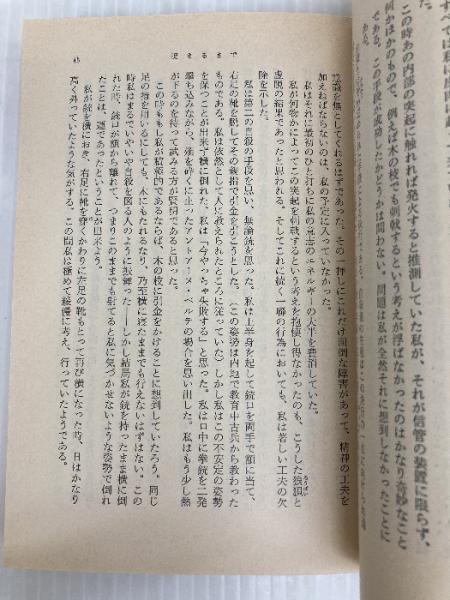 た。
この時あの内部の突起に触れれば発火すると推測していた私が、それが信管の装置に限らず、
何かほかのもので、例えば木の枝でも刺戟するという考えが浮ばなかったのはかなり奇妙なこと
である。この手段が成功したかどうかは問わない。問題は私が全然それに想到しなかったことに
45
捉まるまで
意識を無としてくれるはずであった。その一押しにこれだけ面倒な障害があって、精神の工夫を
加えねばならないのは、私の予定に入っていなかった。
私はそれに最初のひと打ちに私の意志のエネルギーの大半を費消していた。
私が何物かによってこの突起を刺戟するという考えを抱懐し得なかったのも、こうした狼狽と
虚脱の結果であったと思われる。そしてこれに続く一聯の行為においても、私は著しい工夫の欠
除を示した。
私は第二の自殺の手段を思い、無論銃を思った。私は上半身を起して銃口を両手で額に当て、
右足の靴を脱してその親指で引金を引こうとした。(この姿勢は内地で教育中古兵から教わった
ものである。私は依然として人に教えられたところに従っていた)しかし私はこの不安定の姿勢
を保つことが出来ず横に倒れた。私は「今やっちゃ失敗する」と思った。私は口中に拳銃を二発
撃ち込みながら、頬を砕くに止ったアントアーヌ・ベルテの場合を思い出した。私はもう少し熱
が下るのを待って試みる方が賢明であると思った。
この時もし私が積極的であるならば、木の枝に引金をかけることに想到していたろう。同じ
足の指を用いるにしても、木にもたれるなり、乃至横に寝たままでも行えないはずはない。この
時私はまるでいやいや自殺を図る人のように振舞った――しかし結局私が銃を持ったまま横に倒
れた時、銃口が額から離れて、つまりこのままでも射てると私に気づかせないような姿勢で倒れ
たことは、運であったということが出来よう。
私が銃を横におき、右足に靴を穿くかわりに左足の靴もとって再び横になった時、日はかなり
高く昇っていたような気がする。この間私は極めて緩慢に考え、行っていたようである。